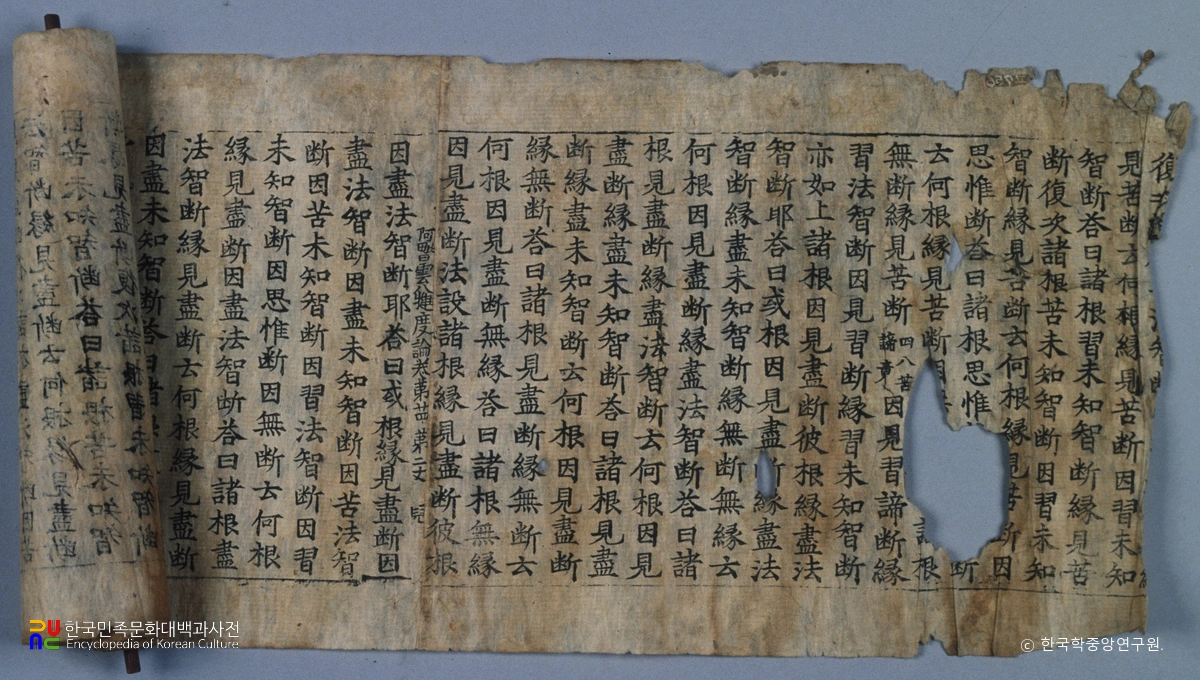 復
見苦断去何根縁見苦断因習未知
智断荅曰諸根習未知智断縁見苦
断復次諸根苦未知智断因習未知
智断縁見苦断去何根縁見苦断因
思惟断荅曰諸根思惟断
去何根縁見苦断因根
無断縁見苦断四八苦諦章因見習諦断縁
習法智断因見習断縁習未知智断
亦如上諸根因見盡断彼根縁盡法
智断耶荅曰或根因見盡断縁盡法
智断縁盡未知智断縁無断無縁去
何根因見盡断縁盡法智断荅曰諸
根見盡断縁盡法智断去何根因見
盡断縁盡未知智断荅曰諸根見盡
断縁盡未知智断去何根因見盡断
縁無断荅曰諸根見盡断縁無断去
何根因見盡断無縁荅曰諸根無縁
因見盡断法設諸根縁見盡断彼根
阿毗曇雜度論卷第廿四 第二丈
因盡法智断耶荅曰或根縁見盡断因
盡法智断因盡未知智断因苦法智
断因苦未知智断因習法智断因習
未知智断因思惟断因無断去何根
縁見盡断因盡法智断荅曰諸根盡
法智断縁見盡断去何根縁見盡断
因盡未知智断荅曰諸
未知智断
因苦未知智断荅曰諸根苦未知智
法智断縁見盡断去何根縁見盡断
한국민족문화대백과사전
Encyclopedia of Korean Culture
ⓒ 한국학중앙연구원.